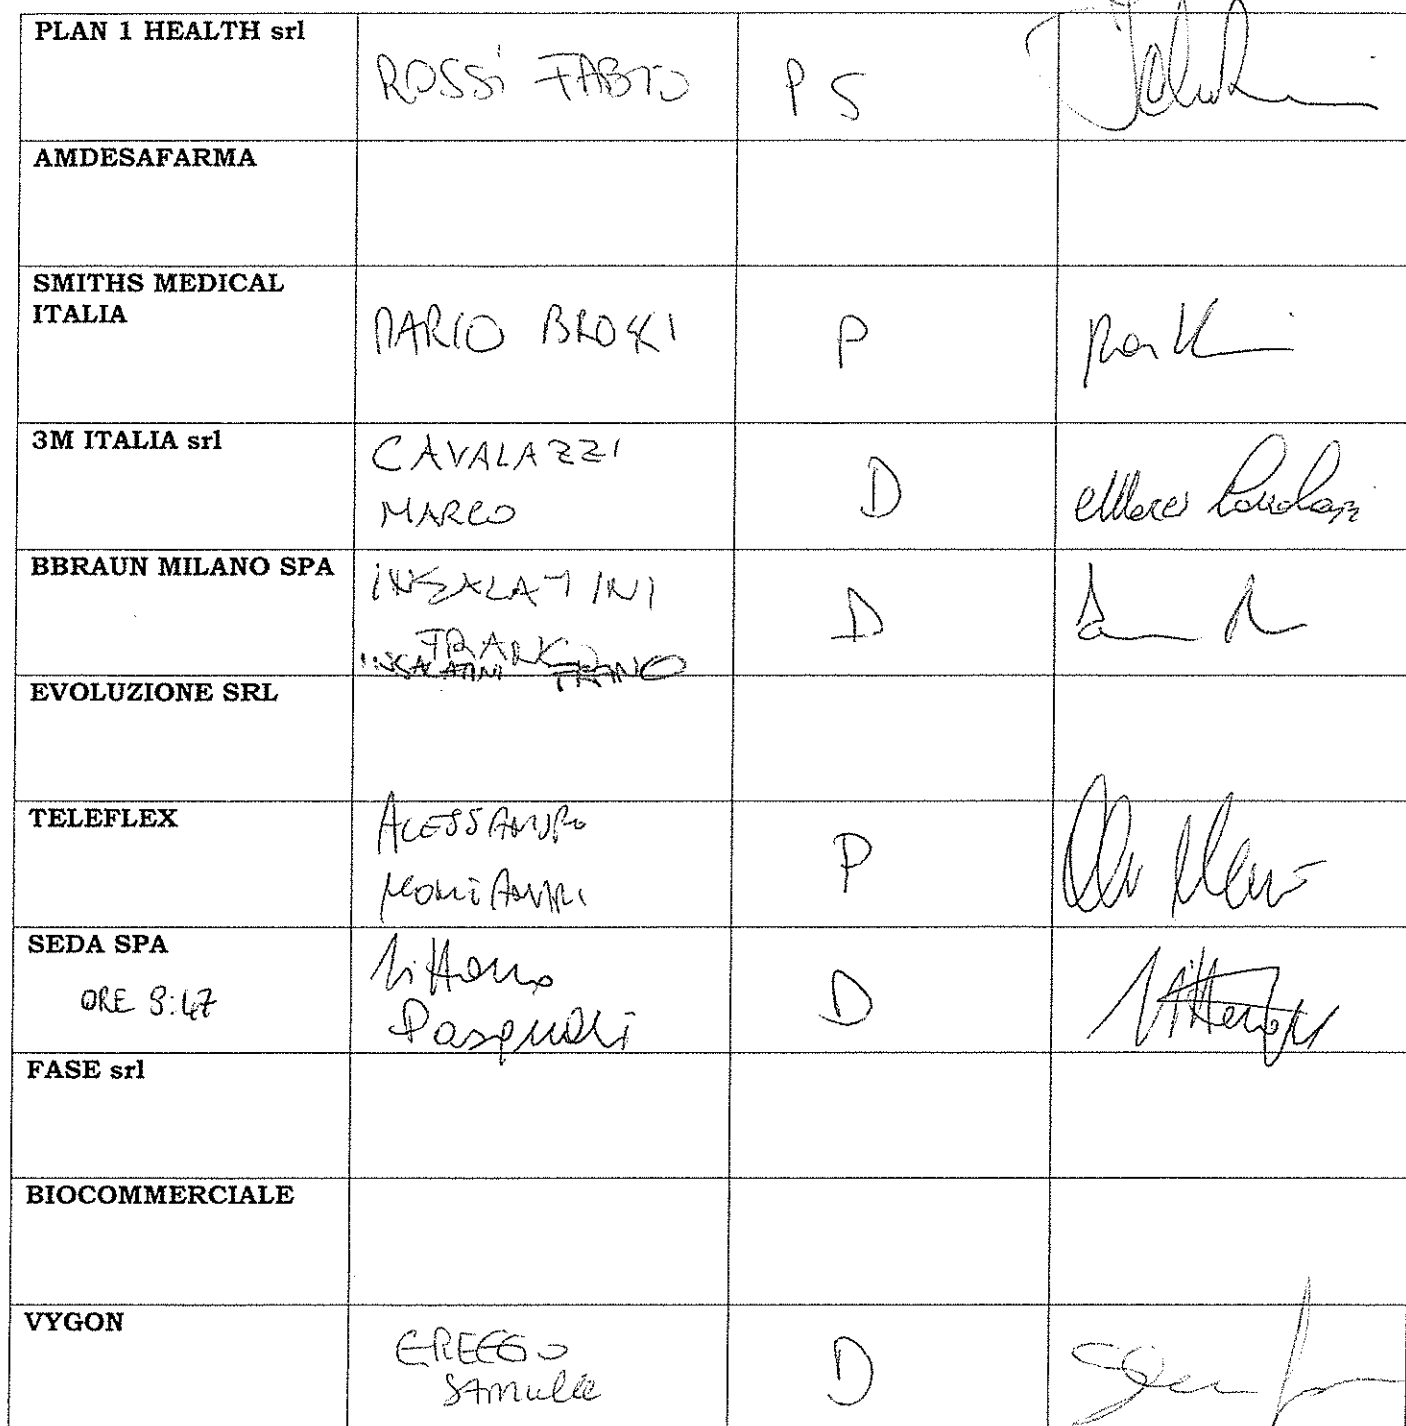 PLAN 1 HEALTH srl
ROSSI FABIO
P S
AMDESAFARMA
SMITHS MEDICAL
ITALIA
MARIO
P
3M ITALIA srl
CAVALAZZI
MARCO
D
BBRAUN MILANO SPA
INSALATINI
FRANCO
INSALATINI FRANCO
D
EVOLUZIONE SRL
TELEFLEX
ALESSANDRO
P
SEDA SPA
ORE 9:47
Vittorio
D
FASE srl
BIOCOMMERCIALE
VYGON
D